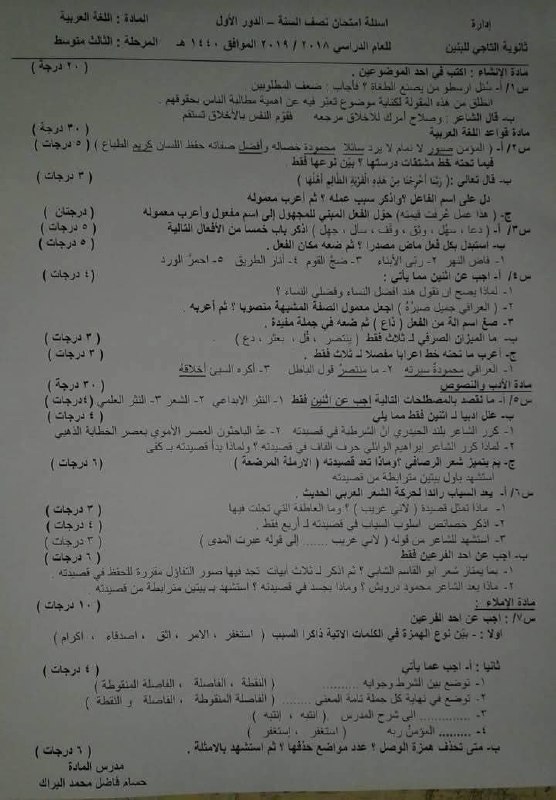 إدارة
اسئلة امتحان نصف السنة – الدور الأول
المادة : اللغة العربية
ثانوية التاجي للبنين
للعام الدراسي ٢٠١٨ / ٢٠١٩ الموافق ١٤٤٠ هـ
المرحلة : الثالث متوسط
مادة الإنشاء : اكتب في احد الموضوعين . ( ٢٠ درجة )
س١/ أ- سُئل ارسطو من يصنع الطغاة ؟ فأجاب : ضعف المظلومين
انطلق من هذه المقولة لكتابة موضوع تعبّر فيه عن اهمية مطالبة الناس بحقوقهم .
ب- قال الشاعر : وصلاح أمرك للأخلاق مرجعه فقوّم النفس بالأخلاق تستقم
مادة قواعد اللغة العربية ( ٣٠ درجة
س٢/ أ- ( المؤمن صبور لا نمام لا يرد سائلا محمودة خصاله وأفضل صفاته حفظ اللسان كريم الطباع ) ( ٥ درجات )
فيما تحته خط مشتقات درستها ؟ بيّن نوعها فقط
ب- قال تعالى : ( رَبَّنَا أَخْرِجْنَا مِنْ هَٰذِهِ الْقَرْيَةِ الظَّالِمِ أَهْلُهَا ) ( ٣ درجات )
دل على اسم الفاعل ؟واذكر سبب عمله ؟ ثم أعرب معموله
ج- ( هذا عمل عُرفت قيمته) حوّل الفعل المبني للمجهول إلى اسم مفعول وأعرب معموله ( درجتان )
س٣/ أ- ( دعا ، سهُل ، وثق ، وقف ، سأل ، جهل ) اذكر باب خمسا من الأفعال التالية ( ٥ درجات )
ب- استبدل بكل فعل ماض مصدرا ؟ ثم ضعه مكان الفعل . ( ٥ درجات )
١- فاض النهر ٢- ربّى الأبناء ٣- ضجّ القوم ٤- أنار الطريق ٥- احمرّ الورد
س٤/ أ- اجب عن اثنين مما يأتي : ( ٤ درجات )
١- لماذا يصح ان نقول هند افضل النساء وفضلى النساء ؟
٢- ( العراقي جميل صبرُهُ ) اجعل معمول الصفة المشبهة منصوبا ؟ ثم أعربه .
٣- صغ اسم الة من الفعل ( ذاع ) ثم ضعه في جملة مفيدة .
ب- ما الميزان الصرفي لـ ثلاث فقط ( ينتصر ، قُل ، بعثر ، دع ) . ( ٣ درجات )
ج- أعرب ما تحته خط اعرابا مفصلا لـ ثلاث فقط . ( ٣ درجات )
١- العراقي محمودة سيرته ٢- ما منتصرٌ قول الباطل ٣- أكره السيئ أخلاقه
مادة الأدب والنصوص ( ٣٠ درجة
س٥/ أ- ما نقصد بالمصطلحات التالية أجب عن اثنين فقط ١- النثر الإبداعي ٢- الشعر ٣- النثر العلمي (٤درجات )
ب- علل ادبيا لـ اثنين فقط مما يلي ( ٤ درجات )
١- كرر الشاعر بلند الحيدري انّ الشرطية في قصيدته ٢- عدّ الباحثون العصر الأموي بعصر الخطابة الذهبي
٢- لماذا كرر الشاعر ابراهيم الوائلي حرف القاف في قصيدته ؟ ولماذا بدأ قصيدته بـ كفى
ج- بم يتميز شعر الرصافي ؟وماذا تعد قصيدته ( الارملة المرضعة ) ( ٦ درجات )
استشهد باول بيتين مترابطة من قصيدته
س٦/ أ- يعد السياب رائدا لحركة الشعر العربي الحديث .
١- ماذا تمثل قصيدة ( لأني غريب ) ؟ وما العاطفة التي تجلت فيها ( ٣ درجات )
٢- اذكر خصائص اسلوب السياب في قصيدته لـ أربع فقط . ( ٤ درجات )
٣- استشهد للشاعر من قوله ( لأني غريب ...... إلى قوله عبرت المدى ) ( ٣ درجات )
ب- اجب عن احد الفرعين فقط ( ٦ درجات )
١- بما يمتاز شعر ابو القاسم الشابي ؟ ثم اذكر لـ ثلاث أبيات تجد فيها صور التفاؤل مقررة للحفظ في قصيدته .
٢- ماذا يعد الشاعر محمود درويش ؟ وماذا يجسد في قصيدته ؟ استشهد بـ بيتين مترابطة من قصيدته
مادة الإملاء : ( ١٠ درجات )
س٧/ : اجب عن احد الفرعين
اولا : - بيّن نوع الهمزة في الكلمات الاتية ذاكرا السبب ( استغفر ، الامر ، اثق ، اصدقاء ، اكرام )
ثانيا : أ- اجب عما يأتي ( ٤ درجات )
١- توضع بين الشرط وجوابه .......... ( النقطة ، الفاصلة ، الفاصلة المنقوطة )
٢- توضع في نهاية كل جملة تامة المعنى ........ ( الفاصلة المنقوطة ، الفاصلة و النقطة )
٣- ............ الى شرح المدرس ( انتبه ، إنتبه )
٤- ......... المؤمنُ ربه ( استغفر ، إستغفر )
ب- متى تحذف همزة الوصل ؟ عدد مواضع حذفها ؟ ثم استشهد بالامثلة . ( ٦ درجات )
مدرس المادة
حسام فاضل محمد البراك